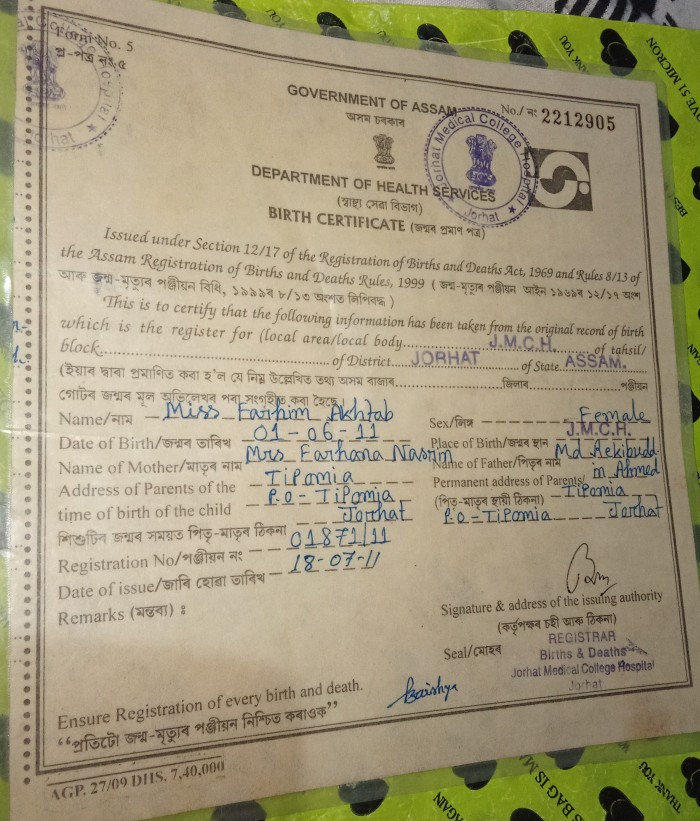 Form No. 5
প্ৰ-পত্ৰ নং ৫
Jorhat
GOVERNMENT OF ASSAM
অসম চৰকাৰ
No./ নং 2212905
Jorhat Medical College Hospital
Jorhat
DEPARTMENT OF HEALTH SERVICES
(স্বাস্থ্য সেৱা বিভাগ)
BIRTH CERTIFICATE (জন্মৰ প্ৰমাণ পত্ৰ)
Issued under Section 12/17 of the Registration of Births and Deaths Act, 1969 and Rules 8/13 of
the Assam Registration of Births and Deaths Rules, 1999 ( জন্ম-মৃত্যুৰ পঞ্জীয়ন আইন ১৯৬৯ৰ ১২/১৭ অংশ
আৰু জন্ম-মৃত্যুৰ পঞ্জীয়ন বিধি, ১৯৯৯ৰ ৮/১৩ অংশত লিপিবদ্ধ )
This is to certify that the following information has been taken from the original record of birth
which is the register for (local area/local body J.M.C.H. of tahsil/
block of District JORHAT of State ASSAM.
(ইয়াৰ দ্বাৰা প্ৰমাণিত কৰা হ'ল যে নিম্ন উল্লেখিত তথ্য অসম ৰাজ্যৰ জিলাৰ পঞ্জীয়ন
গোটৰ জন্মৰ মূল অভিলেখৰ পৰা সংগৃহীত কৰা হৈছে)
Name/নাম Miss Farhim Akhtab Sex/লিঙ্গ Female
Date of Birth/জন্মৰ তাৰিখ 01-06-11 Place of Birth/জন্মৰ স্থান J.M.C.H.
Name of Mother/মাতৃৰ নাম Mrs Farhana Nasrin Name of Father/পিতৃৰ নাম Md Rekibudd-
in Ahmed
Address of Parents of the Tipomia Permanent address of Parents/ Tipomia
time of birth of the child P.O-Tipomia Jorhat (পিতৃ-মাতৃৰ স্থায়ী ঠিকনা) P.O-Tipomia Jorhat
শিশুটিৰ জন্মৰ সময়ত পিতৃ-মাতৃৰ ঠিকনা
Registration No/পঞ্জীয়ন নং 01871/11
Date of issue/জাৰি হোৱা তাৰিখ 18-07-11
Remarks (মন্তব্য) :
Signature & address of the issuing authority
(কৰ্তৃপক্ষৰ চহী আৰু ঠিকনা)
Seal/মোহৰ REGISTRAR
Births & Deaths
Jorhat Medical College Hospital
Jorhat
Ensure Registration of every birth and death.
“প্ৰতিটো জন্ম-মৃত্যুৰ পঞ্জীয়ন নিশ্চিত কৰাওক”
AGP. 27/09 DHS. 7,40,000
THANK YOU
51 MICRON
THANK YOU
AGAIN
BAG IS